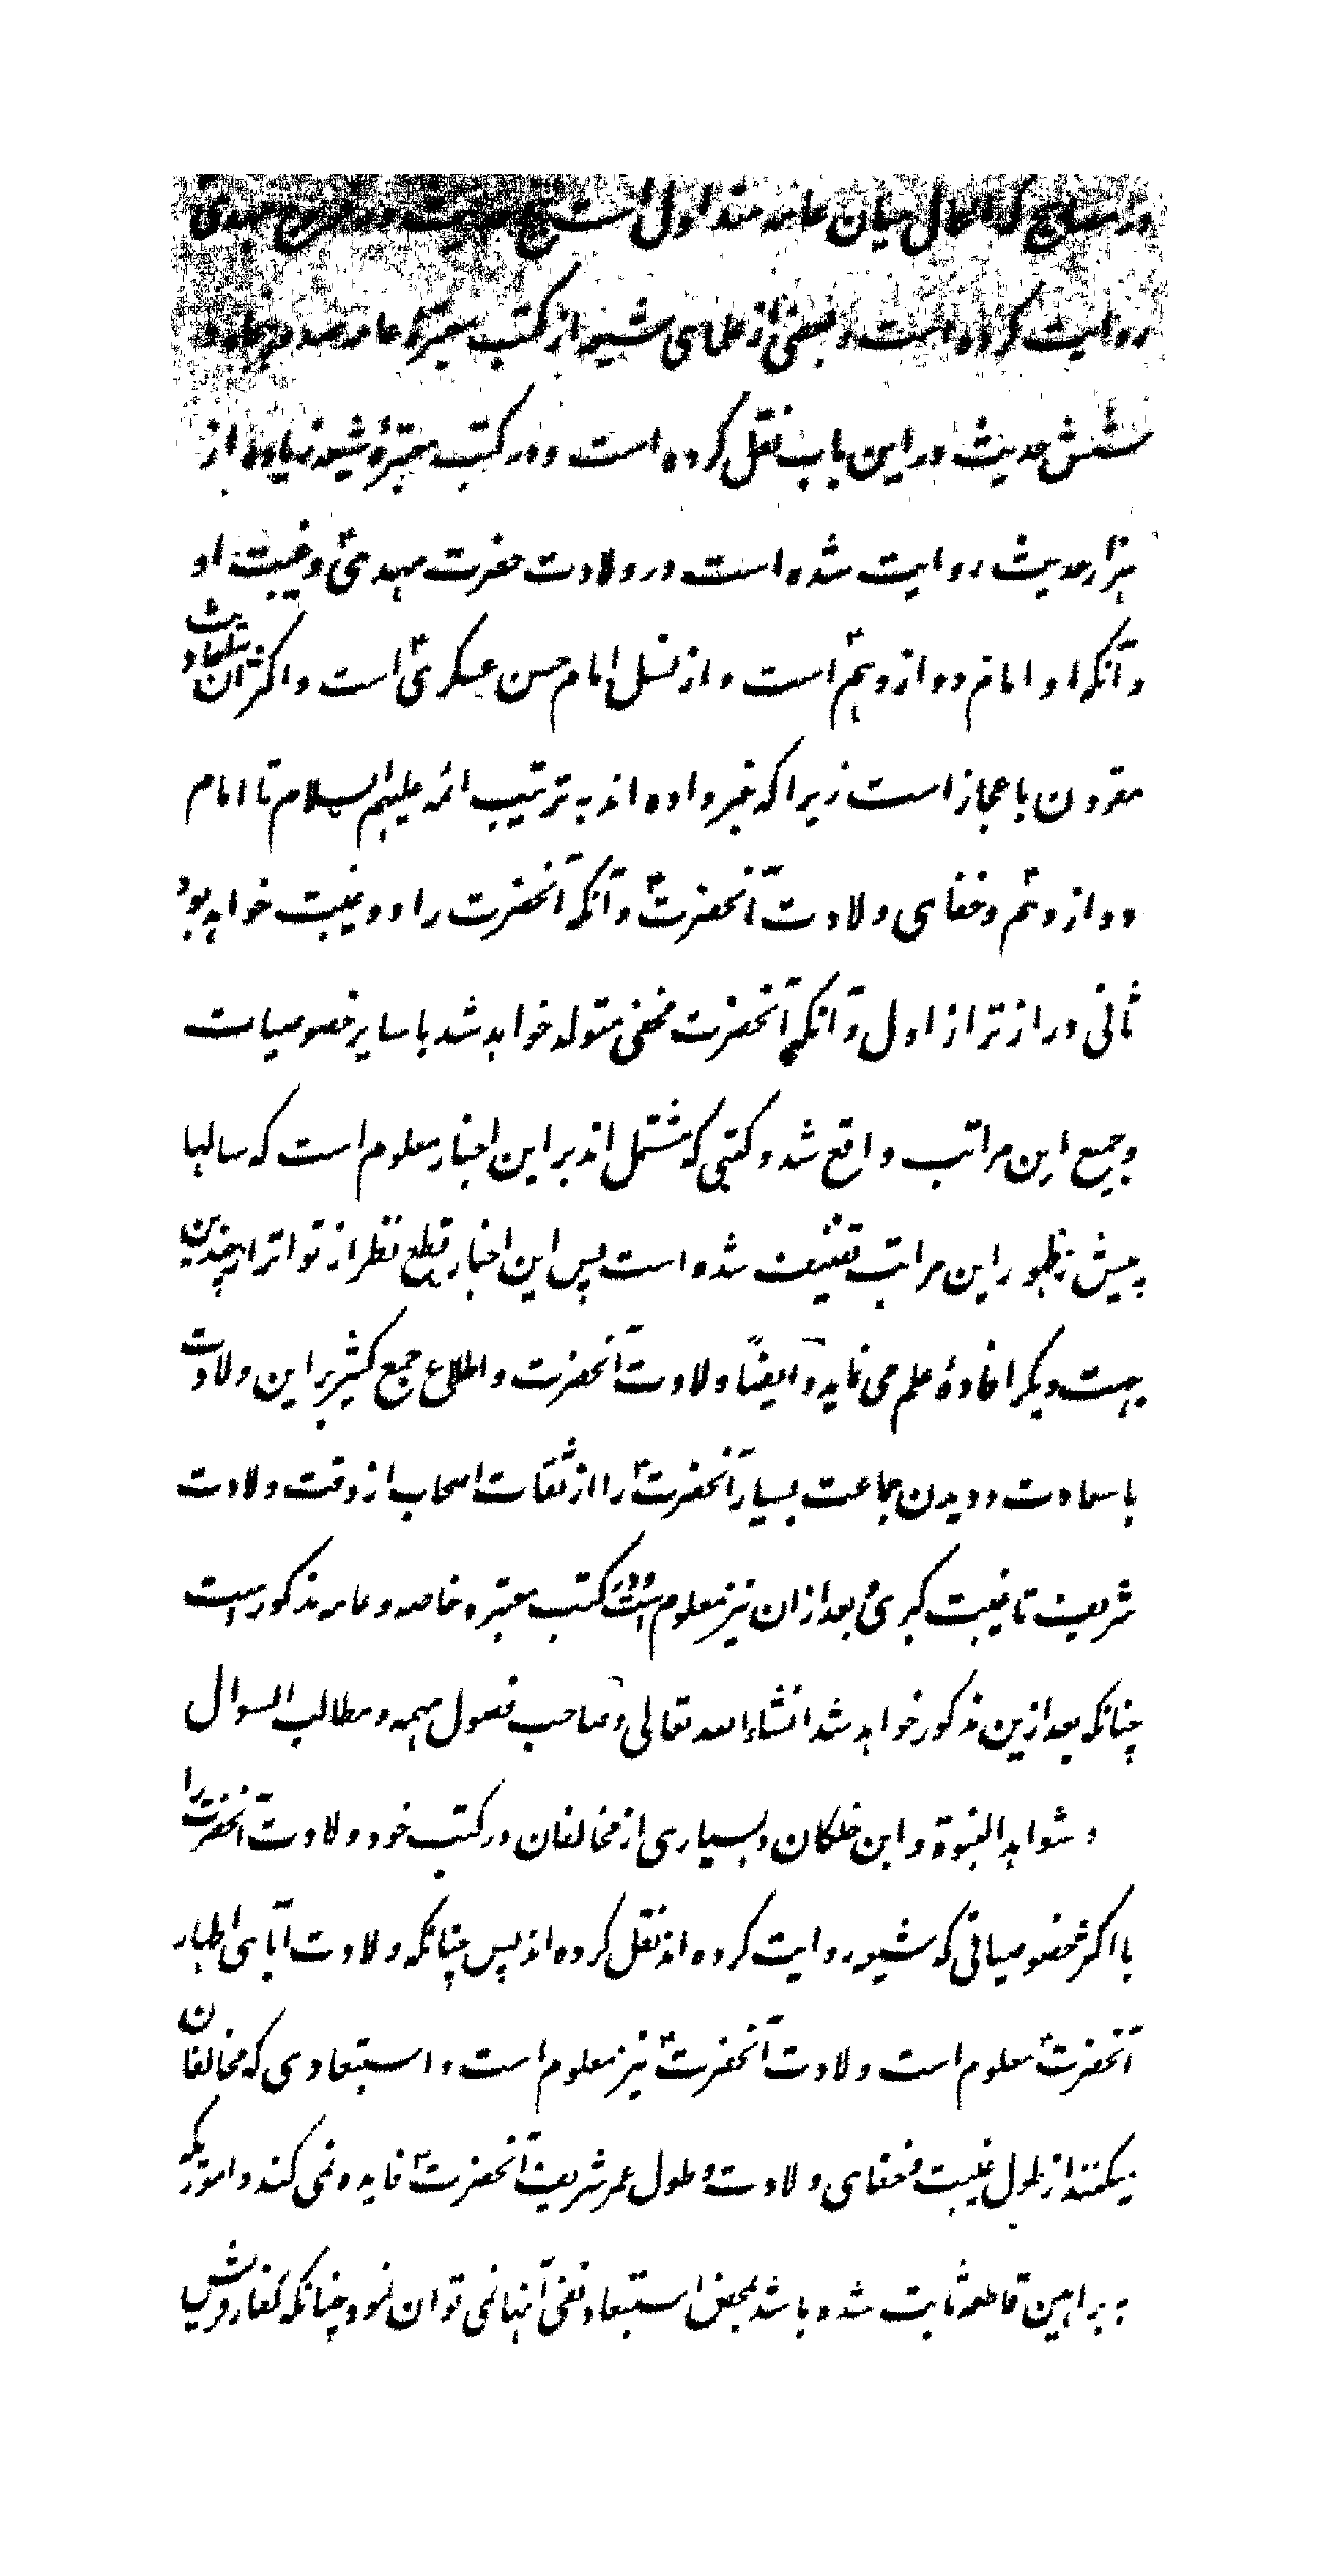 در مصابیح که الحال میان عامه متداول است پنج حدیث در خروج مهدی
روایت کرده است و بعضی از علمای شیعه از کتب معتبرهٔ عامه صد و پنجاه و
شش حدیث در این باب نقل کرده است و در کتب معتبرهٔ شیعه زیاده از
هزار حدیث روایت شده است در ولادت حضرت مهدیؑ و غیبت او
و آنکه او امام دوازدهمؑ است و از نسل امام حسن عسکریؑ است و اکثر آن احادیث
مقرون باعجاز است زیرا که خبر داده اند به ترتیب ائمه علیهم السلام تا امام
دوازدهمؑ و خفای ولادت آنحضرتؑ و آنکه آنحضرت را دو غیبت خواهد بود
ثانی دراز تر از اول و آنکه آنحضرت مخفی متولد خواهد شد با سایر خصوصیات
و جمیع این مراتب واقع شد و کتبی که مشتمل اند بر این اخبار معلوم است که سالها
پیش از ظهور این مراتب تصنیف شده است پس این اخبار قطع نظر از تواتر از چندین
جهت دیگر افادهٔ علم می نماید و ایضاً ولادت آنحضرت و اطلاع جمع کثیر بر این ولادت
با سعادت و دیدن جماعت بسیار آنحضرتؑ را از ثقات اصحاب از وقت ولادت
شریف تا غیبت کبری و بعد ازان نیز معلوم است و در کتب معتبره خاصه و عامه مذکور است
چنانکه بعد ازین مذکور خواهد شد انشاء الله تعالی و صاحب فصول مهمه و مطالب السوال
و شواهد النبوة و ابن خلکان و بسیاری از مخالفان در کتب خود ولادت آنحضرت را
با اکثر خصوصیاتی که شیعه روایت کرده اند نقل کرده اند پس چنانکه ولادت آبای اطهار
آنحضرتؑ معلوم است ولادت آنحضرتؑ نیز معلوم است و استبعادی که مخالفان
میکنند از طول غیبت و خفای ولادت و طول عمر شریف آنحضرتؑ فایده نمی کند و امور یکه
به براهین قاطعه ثابت شده باشد بمحض استبعاد نفی آنها نمی توان نمود چنانکه کفار قریش